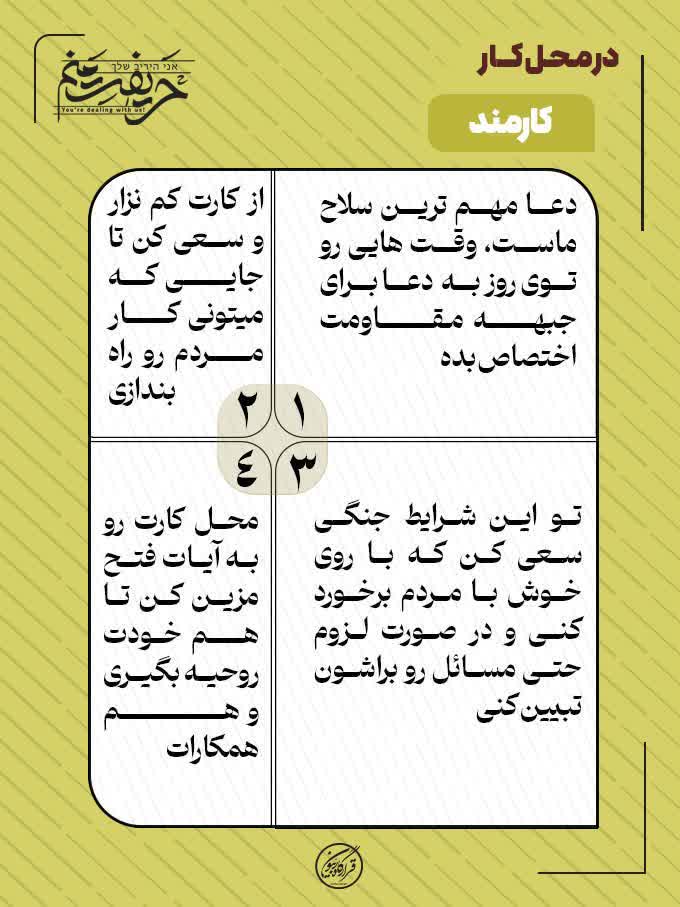 در محل کار
کارمند
אני היריב שלך
حریفت منم
You're dealing with us!
دعا مهم ترین سلاح
ماست، وقت هایی رو
توی روز به دعا برای
جبهه مقاومت
اختصاص بده
از کارت کم نزار
و سعی کن تا
جایی که
میتونی کار
مردم رو راه
بندازی
۱
۲
۳
٤
تو این شرایط جنگی
سعی کن که با روی
خوش با مردم برخورد
کنی و در صورت لزوم
حتی مسائل رو براشون
تبیین کنی
محل کارت رو
به آیات فتح
مزین کن تا
هم خودت
روحیه بگیری
و هم
همکارات